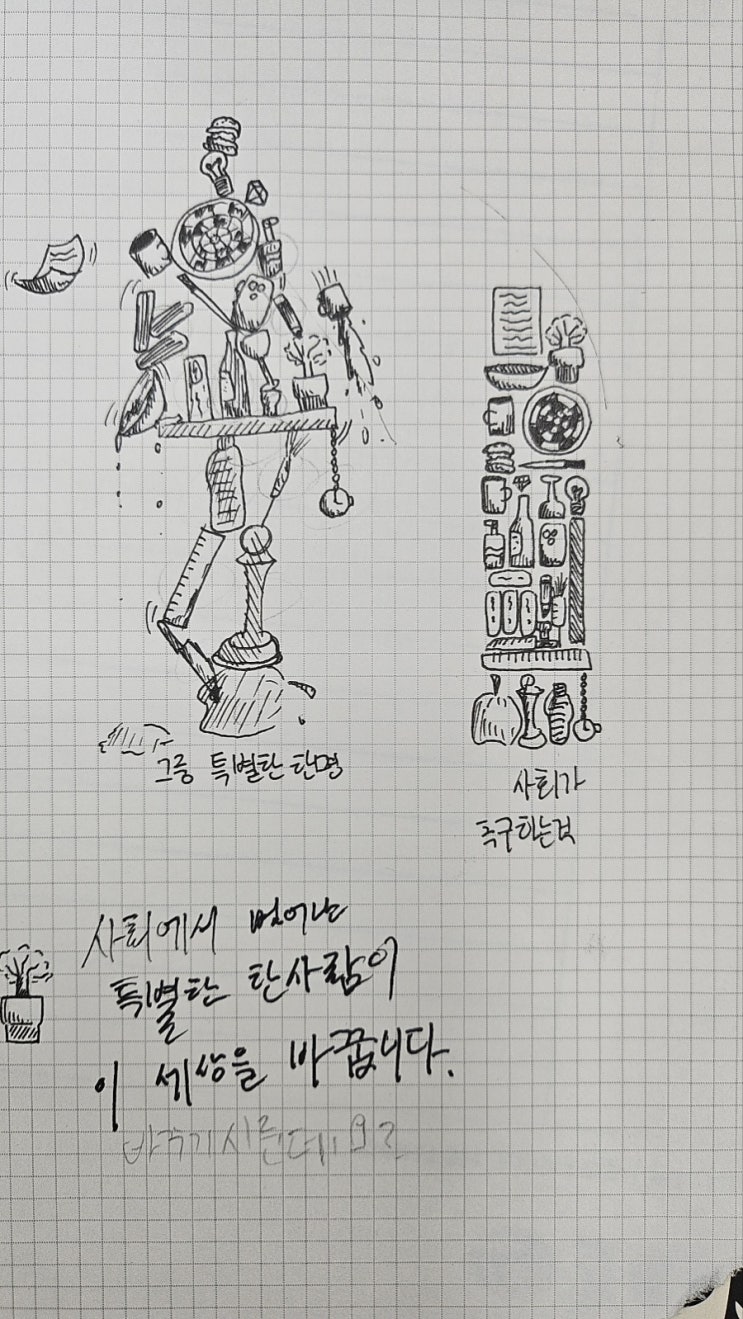 그중 특별한 한명
사회가
촉구하는것
사회에서 벗어난
특별한 한사람이
이 세상을 바꿉니다.
바꾸기시른데